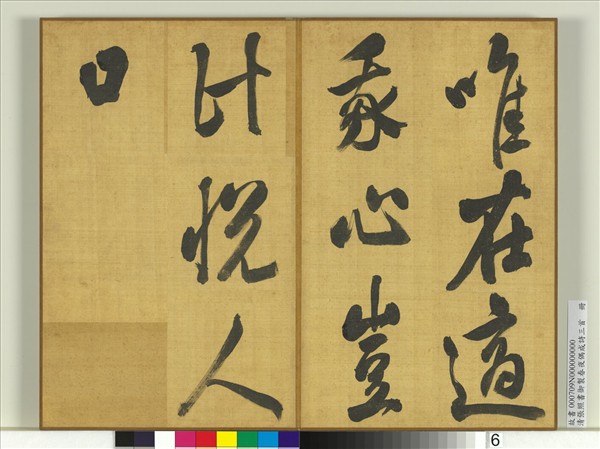 唯在適
我心豈
計悅人
口
故書000709N000000000
清張照書御製春夜偶成詩三首 冊
6